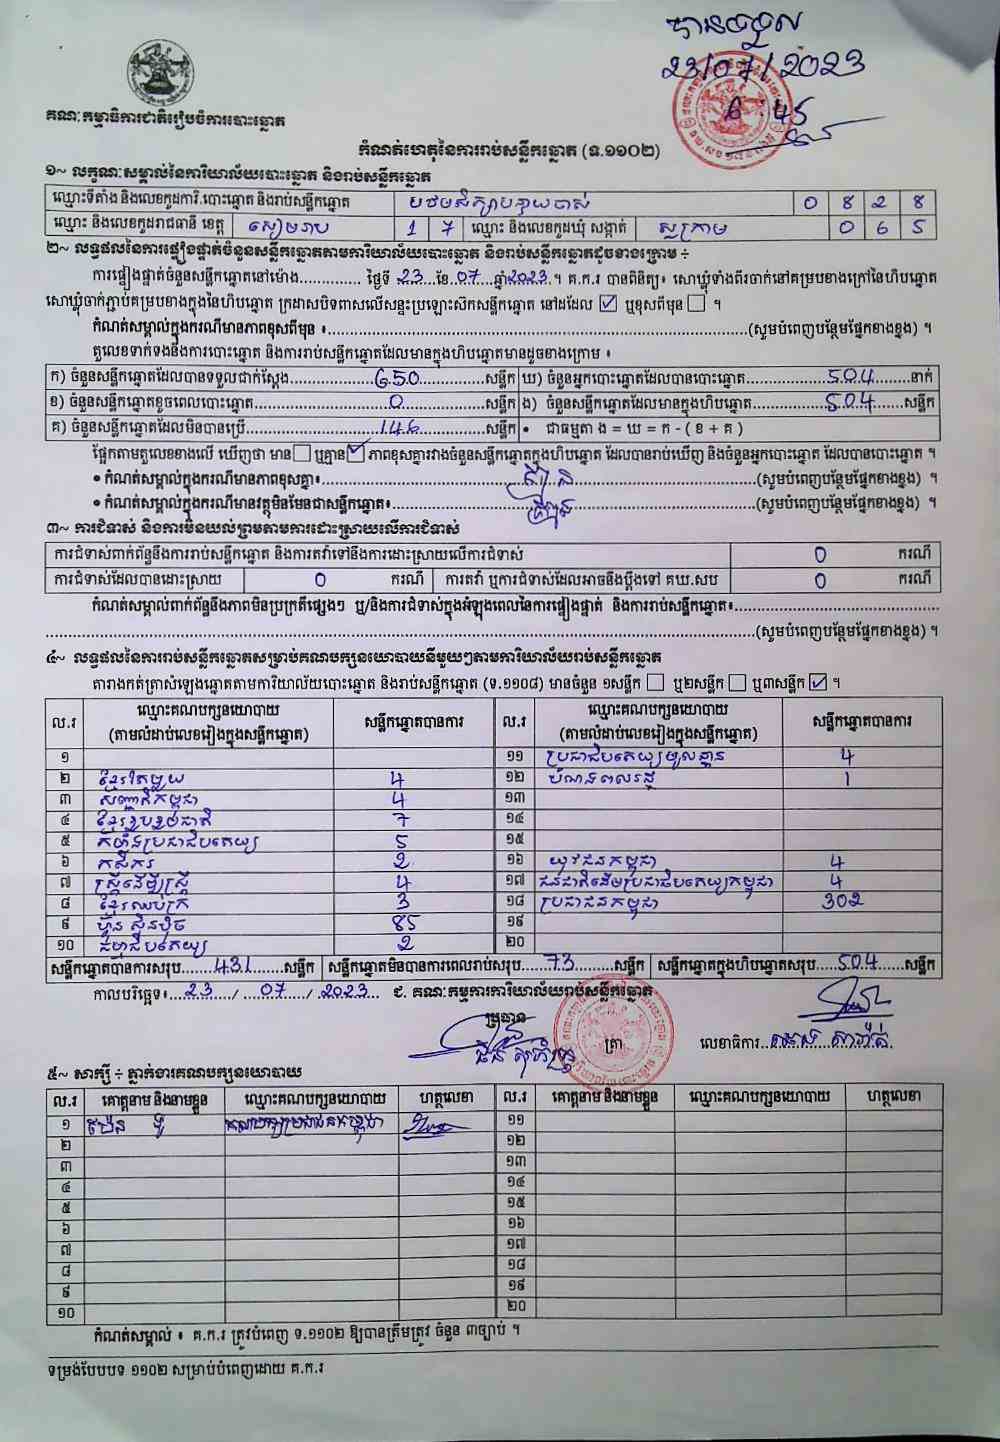 បានចូល
23/07/2023
6:45
គណៈកម្មាធិការជាតិរៀបចំការបោះឆ្នោត
កំណត់ហេតុនៃការរាប់សន្លឹកឆ្នោត (ទ.១១០២)
១~ លក្ខណៈសម្គាល់នៃការិយាល័យបោះឆ្នោត និងរាប់សន្លឹកឆ្នោត
ឈ្មោះទីតាំង និងលេខកូដការិ.បោះឆ្នោត និងរាប់សន្លឹកឆ្នោត 0 8 2 8
ឈ្មោះ និងលេខកូដរាជធានី ខេត្ត សៀមរាប 1 7 ឈ្មោះ និងលេខកូដឃុំ សង្កាត់ ស្លក្រាម 0 6 5
២~ លទ្ធផលនៃការផ្ទៀងផ្ទាត់ចំនួនសន្លឹកឆ្នោតតាមការិយាល័យបោះឆ្នោត និងរាប់សន្លឹកឆ្នោតដូចខាងក្រោម ÷
ការផ្ទៀងផ្ទាត់ចំនួនសន្លឹកឆ្នោតនៅម៉ោង.............. ថ្ងៃទី 23 ខែ 07 ឆ្នាំ 2023 ។ គ.ក.រ បានពិនិត្យ៖ សោឃ្លុំទាំងពីរចាក់នៅគម្របខាងក្រៅនៃហិបឆ្នោត
សោឃ្លុំចាក់ភ្ជាប់គម្របខាងក្នុងនៃហិបឆ្នោត ក្រដាសបិទពាសលើសន្ទះប្រឡោះសិកសន្លឹកឆ្នោត នៅដដែល ☑ ឬខុសពីមុន ☐ ។
កំណត់សម្គាល់ក្នុងករណីមានភាពខុសពីមុន ៖ (សូមបំពេញបន្ថែមផ្នែកខាងខ្នង) ។
តួលេខទាក់ទងនឹងការបោះឆ្នោត និងការរាប់សន្លឹកឆ្នោតដែលមានក្នុងហិបឆ្នោតមានដូចខាងក្រោម ៖
ក) ចំនួនសន្លឹកឆ្នោតដែលបានទទួលជាក់ស្តែង 650 សន្លឹក ឃ) ចំនួនអ្នកបោះឆ្នោតដែលបានបោះឆ្នោត 504 នាក់
ខ) ចំនួនសន្លឹកឆ្នោតខូចពេលបោះឆ្នោត 0 សន្លឹក ង) ចំនួនសន្លឹកឆ្នោតដែលមានក្នុងហិបឆ្នោត 504 សន្លឹក
គ) ចំនួនសន្លឹកឆ្នោតដែលមិនបានប្រើ 146 សន្លឹក • ជាធម្មតា ង = ឃ = ក - ( ខ + គ )
ផ្អែកតាមតួលេខខាងលើ ឃើញថា មាន ☐ ឬគ្មាន ☑ ភាពខុសគ្នារវាងចំនួនសន្លឹកឆ្នោតក្នុងហិបឆ្នោត ដែលបានរាប់ឃើញ និងចំនួនអ្នកបោះឆ្នោត ដែលបានបោះឆ្នោត ។
• កំណត់សម្គាល់ក្នុងករណីមានភាពខុសគ្នា៖ (សូមបំពេញបន្ថែមផ្នែកខាងខ្នង) ។
• កំណត់សម្គាល់ក្នុងករណីមានវត្ថុមិនមែនជាសន្លឹកឆ្នោត៖ (សូមបំពេញបន្ថែមផ្នែកខាងខ្នង) ។
៣~ ការជំទាស់ និងការមិនយល់ព្រមតាមការដោះស្រាយលើការជំទាស់
ការជំទាស់ពាក់ព័ន្ធនឹងការរាប់សន្លឹកឆ្នោត និងការតវ៉ាទៅនឹងការដោះស្រាយលើការជំទាស់ 0 ករណី
ការជំទាស់ដែលបានដោះស្រាយ 0 ករណី ការតវ៉ា ឬការជំទាស់ដែលអាចនឹងប្តឹងទៅ គឃ.សប 0 ករណី
កំណត់សម្គាល់ពាក់ព័ន្ធនឹងភាពមិនប្រក្រតីផ្សេងៗ ឬ/និងការជំទាស់ក្នុងអំឡុងពេលនៃការផ្ទៀងផ្ទាត់ និងការរាប់សន្លឹកឆ្នោត៖
(សូមបំពេញបន្ថែមផ្នែកខាងខ្នង) ។
៤~ លទ្ធផលនៃការរាប់សន្លឹកឆ្នោតសម្រាប់គណបក្សនយោបាយនីមួយៗតាមការិយាល័យរាប់សន្លឹកឆ្នោត
តារាងកត់ត្រាសំឡេងឆ្នោតតាមការិយាល័យបោះឆ្នោត និងរាប់សន្លឹកឆ្នោត (ទ.១១០៨) មានចំនួន ១សន្លឹក ☐ ឬ២សន្លឹក ☐ ឬ៣សន្លឹក ☑ ។
ល.រ ឈ្មោះគណបក្សនយោបាយ (តាមលំដាប់លេខរៀងក្នុងសន្លឹកឆ្នោត) សន្លឹកឆ្នោតបានការ ល.រ ឈ្មោះគណបក្សនយោបាយ (តាមលំដាប់លេខរៀងក្នុងសន្លឹកឆ្នោត) សន្លឹកឆ្នោតបានការ
១ ១១ ប្រជាធិបតេយ្យមូលដ្ឋាន 4
២ ខ្មែរតែមួយ 4 ១២ បំណងពលរដ្ឋ 1
៣ សញ្ជាតិកម្ពុជា 4 ១៣
៤ ខ្មែររួបរួមជាតិ 7 ១៤
៥ កម្លាំងប្រជាធិបតេយ្យ 5 ១៥
៦ កសិករ 2 ១៦ យុវជនកម្ពុជា 4
៧ ស្ត្រីដើម្បីស្ត្រី 4 ១៧ ជនជាតិដើមប្រជាធិបតេយ្យកម្ពុជា 4
៨ ខ្មែរឈប់ក្រ 3 ១៨ ប្រជាជនកម្ពុជា 302
៩ ហ្វ៊ុនស៊ិនប៉ិច 85 ១៩
១០ ធម្មាធិបតេយ្យ 2 ២០
សន្លឹកឆ្នោតបានការសរុប 431 សន្លឹក សន្លឹកឆ្នោតមិនបានការពេលរាប់សរុប 73 សន្លឹក សន្លឹកឆ្នោតក្នុងហិបឆ្នោតសរុប 504 សន្លឹក
កាលបរិច្ឆេទ៖ 23 / 07 / 2023 ជ. គណៈកម្មការការិយាល័យរាប់សន្លឹកឆ្នោត
ប្រធាន
ត្រា លេខាធិការ
៥~ សាក្សី ÷ ភ្នាក់ងារគណបក្សនយោបាយ
ល.រ គោត្តនាម និងនាមខ្លួន ឈ្មោះគណបក្សនយោបាយ ហត្ថលេខា ល.រ គោត្តនាម និងនាមខ្លួន ឈ្មោះគណបក្សនយោបាយ ហត្ថលេខា
១ គណបក្សប្រជាជនកម្ពុជា ១១
២ ១២
៣ ១៣
៤ ១៤
៥ ១៥
៦ ១៦
៧ ១៧
៨ ១៨
៩ ១៩
១០ ២០
កំណត់សម្គាល់ ៖ គ.ក.រ ត្រូវបំពេញ ទ.១១០២ ឱ្យបានត្រឹមត្រូវ ចំនួន ៣ច្បាប់ ។
ទម្រង់បែបបទ ១១០២ សម្រាប់បំពេញដោយ គ.ក.រ